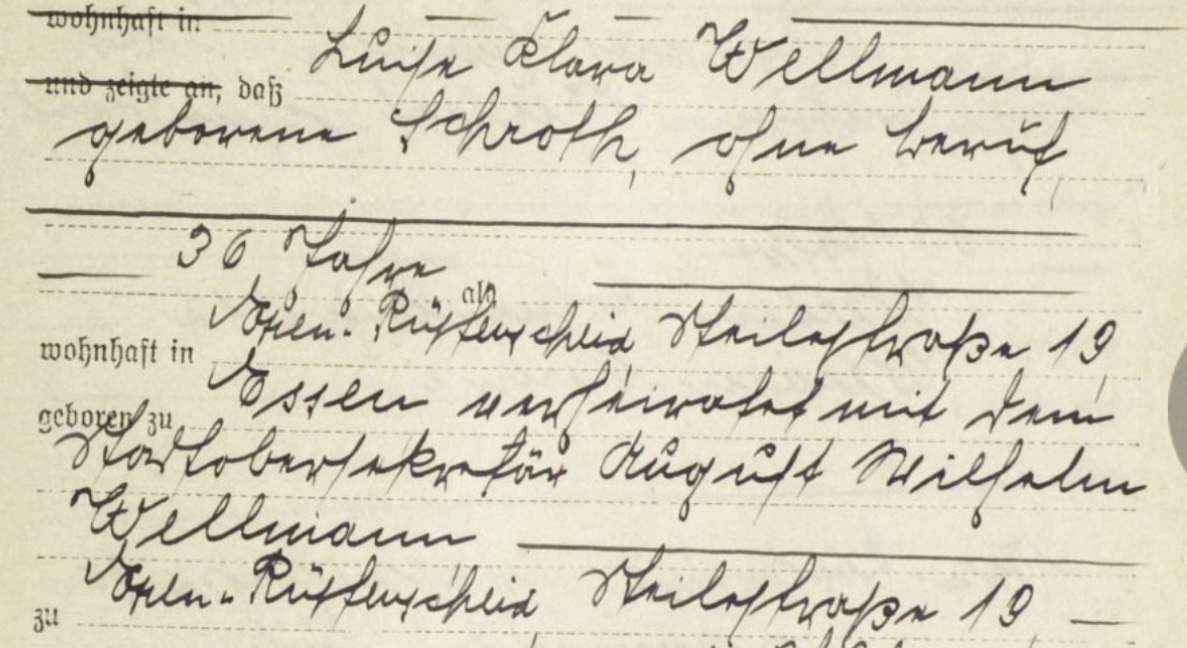 wohnhaft in
Luise Klara Wellmann
und zeigte an, daß
geborene Schroth, ohne Beruf,
36 Jahre
alt
Essen-Rüttenscheid Steilestraße 19
wohnhaft in
Essen verheiratet mit dem
geboren zu
Stadtobersekretär August Wilhelm
Wellmann
Essen-Rüttenscheid Steilestraße 19
zu